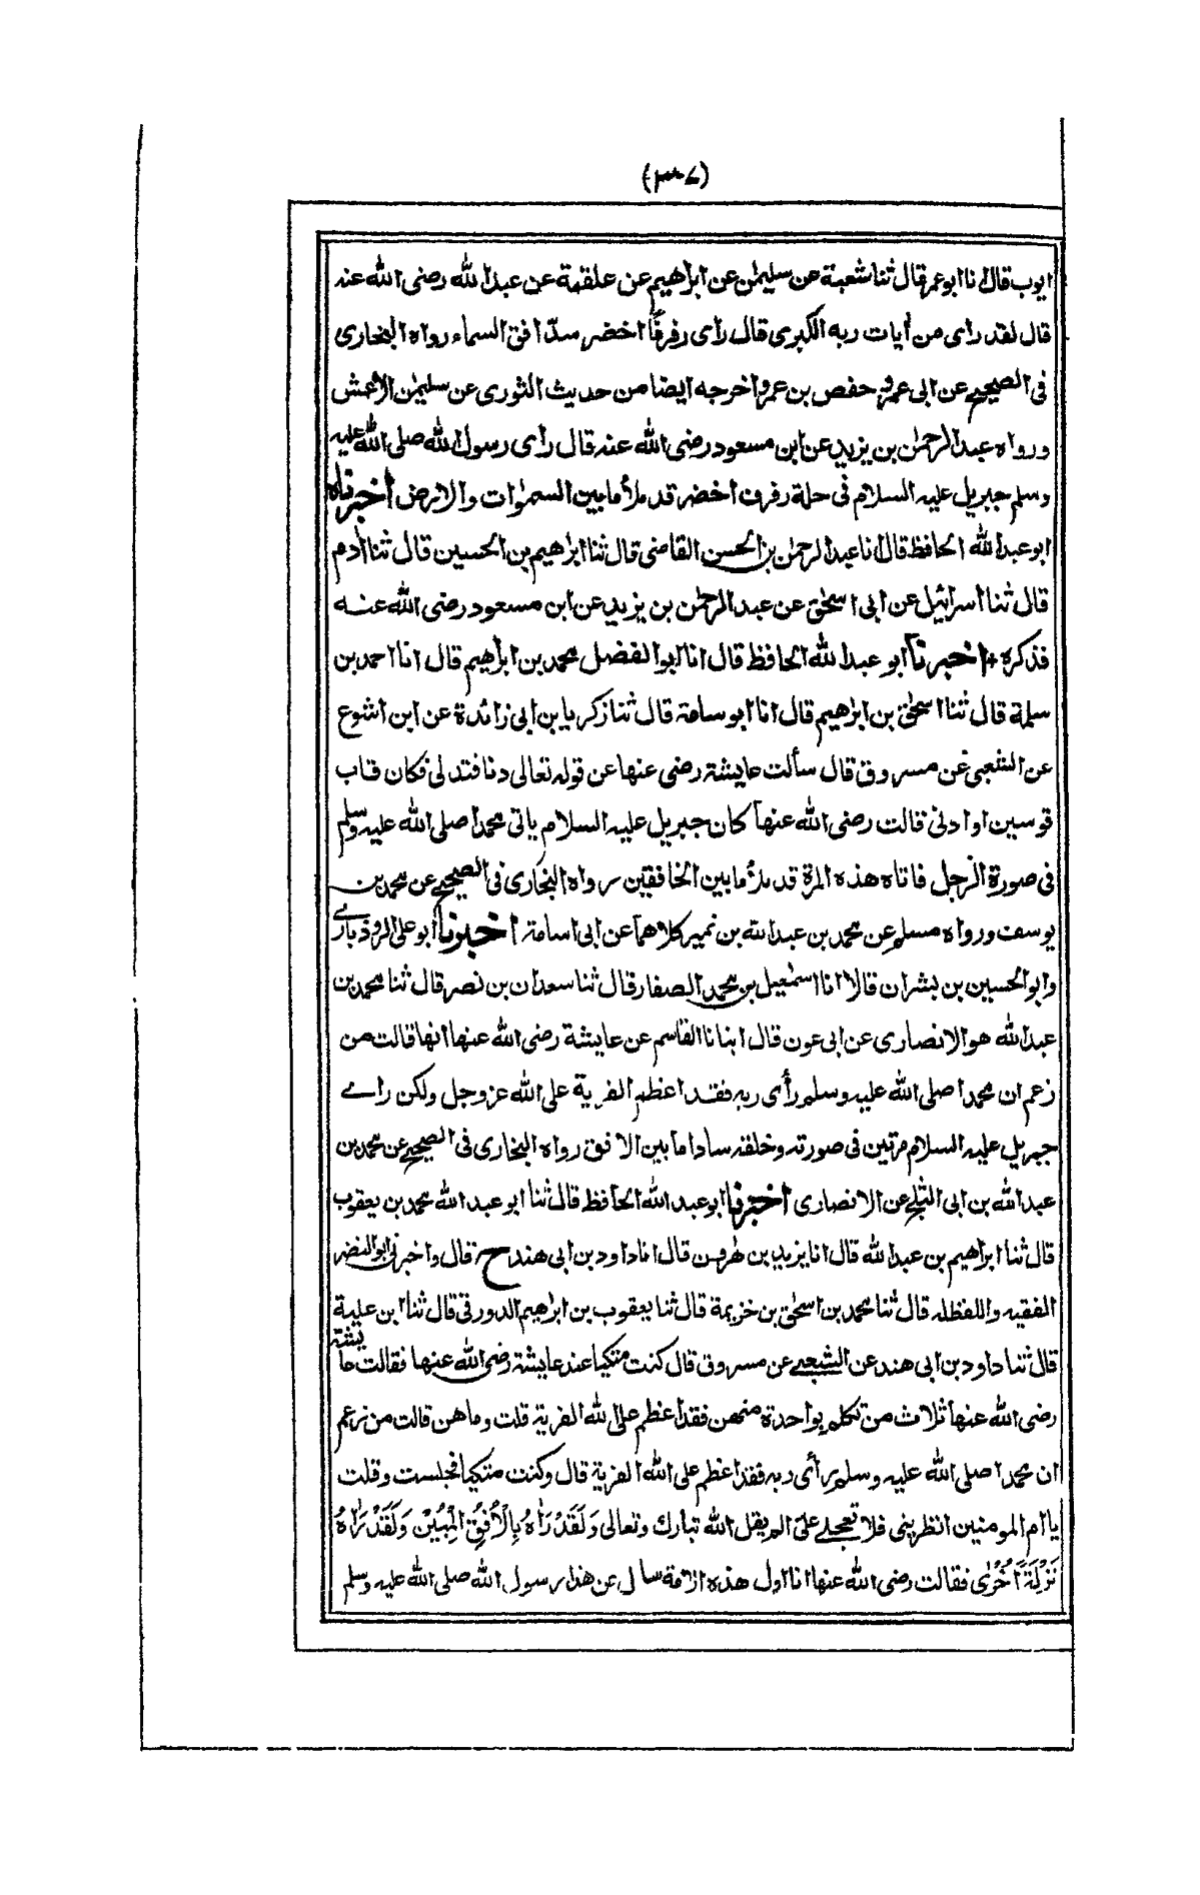 ايوب قال انا ابو عمر قال ثنا شعبة عن سليمٰن عن ابرٰهيم عن علقمة عن عبد الله رضى الله عنه
قال لقد راى من أيات ربه الكبرى قال رأى رفرفًا اخضر سدّ افق السماء رواه البخارى
فى الصحيح عن ابى عمر حفص بن عمر واخرجه ايضا من حديث الثورى عن سليمٰن الاعمش
ورواه عبد الرحمٰن بن يزيد عن ابن مسعود رضى الله عنه قال رأى رسول الله صلى الله عليه
وسلم جبريل عليه السلام فى حلة رفرف اخضر قد ملأ مابين السمٰوات والارض اخبرناه
ابو عبد الله الحافظ قال انا عبد الرحمٰن بن الحسن القاضى قال ثنا ابرٰهيم بن الحسين قال ثنا أدم
قال ثنا اسرائيل عن ابى اسحٰق عن عبد الرحمٰن بن يزيد عن ابن مسعود رضى الله عنه
فذكره اخبرنا ابو عبد الله الحافظ قال انا ابو الفضل محمد بن ابرٰهيم قال انا احمد بن
سلمة قال ثنا اسحٰق بن ابرٰهيم قال انا ابو سامة قال ثنا زكريا بن ابى زائدة عن ابن اشوع
عن الشعبى عن مسروق قال سألت عايشة رضى عنها عن قوله تعالى دنا فتدلى فكان قاب
قوسين او ادنى قالت رضى الله عنها كان جبريل عليه السلام ياتى محمدا صلى الله عليه وسلم
فى صورة الرجل فاتاه هذه المرة قد ملأ مابين الخافقين رواه البخارى فى الصحيح عن محمد بن
يوسف ورواه مسلم عن محمد بن عبد الله بن نمير كلاهما عن ابى اسامة اخبرنا ابو على الروذبارے
وابو الحسين بن بشران قالا انا اسمٰعيل بن محمد الصفار قال ثنا سعدان بن نصر قال ثنا محمد بن
عبد الله هو الانصارى عن ابى عون قال انبانا القاسم عن عايشة رضى الله عنها انها قالت من
زعم ان محمدا صلى الله عليه وسلم رأى ربه فقد اعظم الفرية على الله عز وجل ولكن راے
جبريل عليه السلام مرتين فى صورته وخلقه سادا مابين الافق رواه البخارى فى الصحيح عن محمد بن
عبد الله بن ابى الثلج عن الانصارى اخبرنا ابو عبد الله الحافظ قال ثنا ابو عبد الله محمد بن يعقوب
قال ثنا ابراهيم بن عبد الله قال انا يزيد بن هٰرون قال انا داود بن ابى هند ح قال واخبرنى ابو النضر
الفقيه واللفظ له قال ثنا محمد بن اسحٰق بن خزيمة قال ثنا يعقوب بن ابرٰهيم الدورقى قال ثنا ابن علية
قال ثنا داود بن ابى هند عن الشعبے عن مسروق قال كنت متكيا عند عايشة رضى الله عنها فقالت عايشة
رضى الله عنها ثلاث من تكلم بواحدة منهن فقد اعظم على الله الفرية قلت وما هن قالت من زعم
ان محمدا صلى الله عليه وسلم رأى ربه فقد اعظم على الله الفرية قال وكنت متكيا فجلست وقلت
يا ام المومنين انظرينى فلا تعجلے علىّ الم يقل الله تبارك وتعالى وَلَقَدْ رَاٰهُ بِالْاُفُقِ الْمُبِيْنِ وَلَقَدْ رَاٰهُ
نَزْلَةً اُخْرٰى فقالت رضى الله عنها انا اول هذه الامة سال عن هذا رسول الله صلى الله عليه وسلم